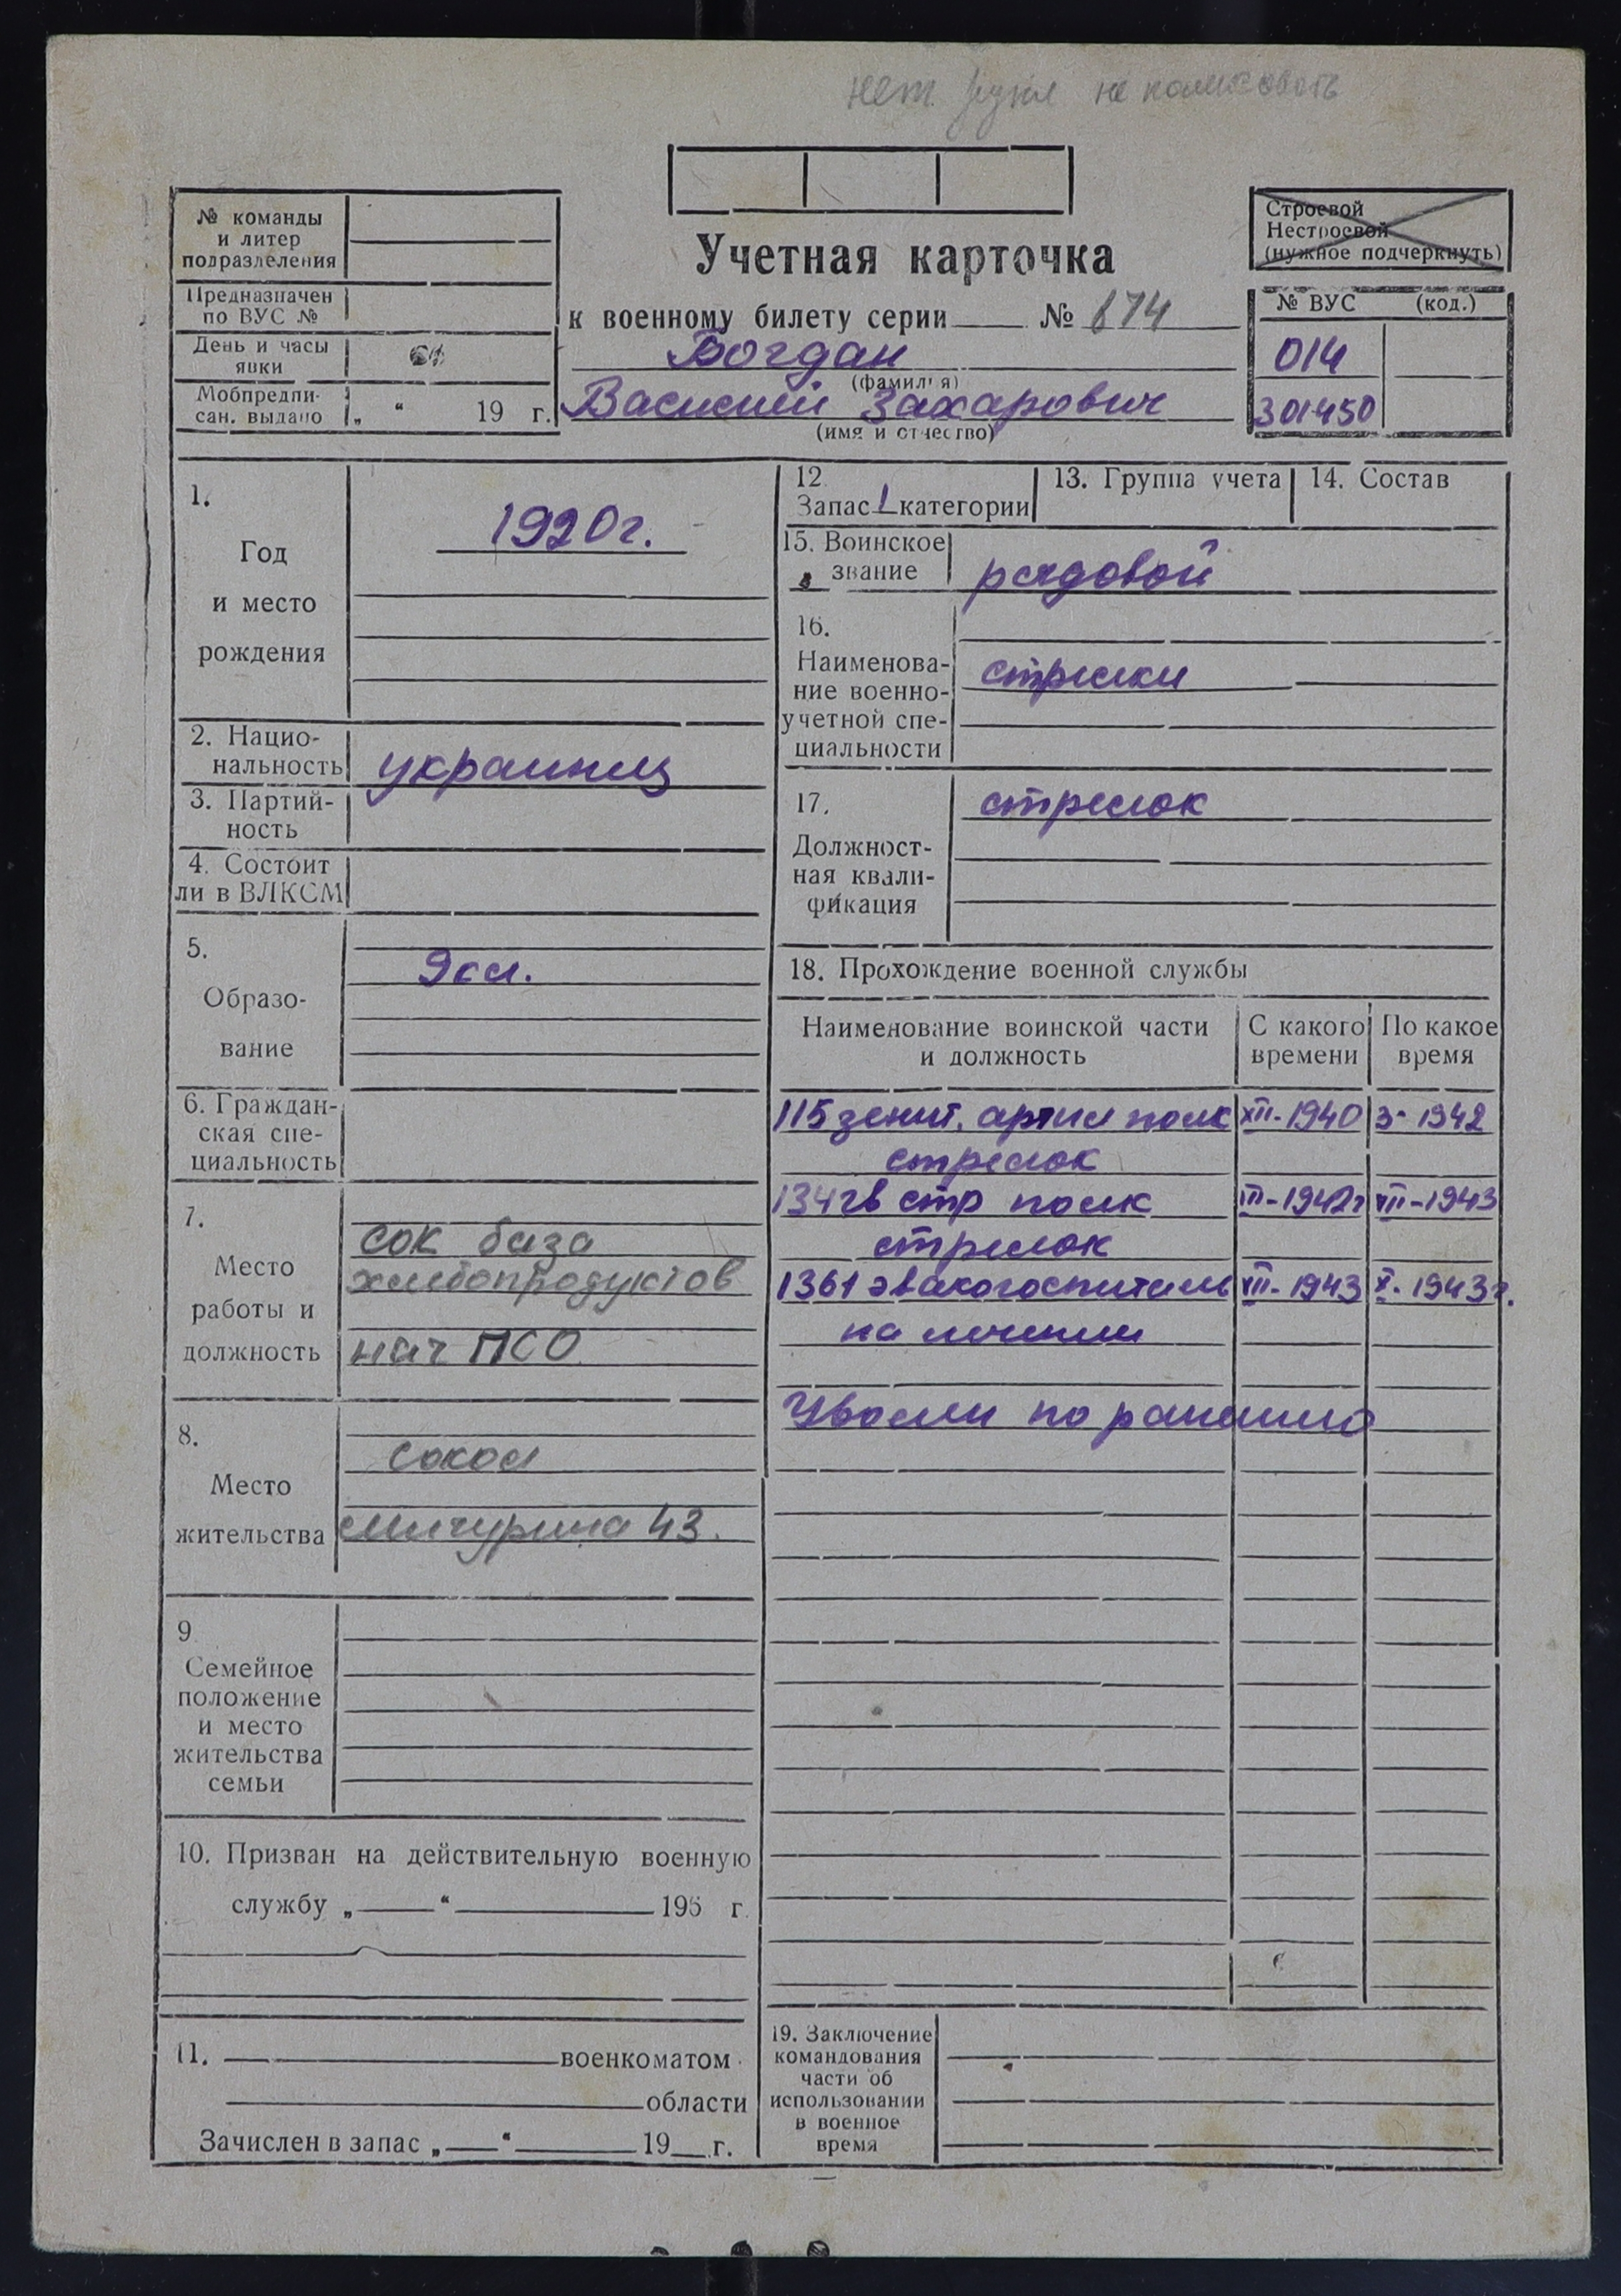 не пользовать
№ команды
и литер
подразделения
Предназначен
по ВУС №
День и часы
явки
Мобпредпи-
сан. выдано „ “ 19 г.
Учетная карточка
к военному билету серии № 874
Богдан
(фамилия)
Василий Захарович
(имя и отчество)
Строевой
Нестроевой
(нужное подчеркнуть)
№ ВУС (код.)
014
301450
1.
Год
и место
рождения
1920г.
2. Нацио-
нальность
украинец
3. Партий-
ность
4. Состоит
ли в ВЛКСМ
5.
Образо-
вание
9кл.
6. Граждан-
ская спе-
циальность
7.
Место
работы и
должность
сок база
хлебопродуктов
нач ПСО
8.
Место
жительства
Сокол
Мичурина 43.
9
Семейное
положение
и место
жительства
семьи
10. Призван на действительную военную
службу „ “ 195 г.
11. военкоматом
области
Зачислен в запас „ “ 19 г.
12.
Запас 1 категории
13. Группа учета
14. Состав
15. Воинское
звание
рядовой
16.
Наименова-
ние военно-
учетной спе-
циальности
стрелки
17.
Должност-
ная квали-
фикация
стрелок
18. Прохождение военной службы
Наименование воинской части
и должность
С какого
времени
По какое
время
115 зенит. артил полк XII-1940 3-1942
стрелок
134 гв стр полк III-1942г VII-1943
стрелок
1361 эвакогоспиталь VII-1943 X-1943г.
на лечении
Уволен по ранению
19. Заключение
командования
части об
использовании
в военное
время